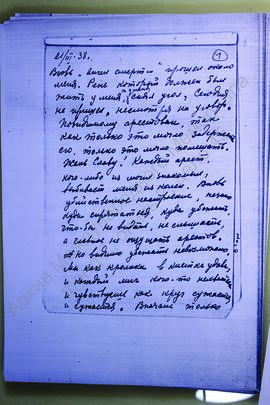 21/III-38.
1
Вновь „ангел смерти" прошел около
меня. Рене который должен был
жить у меня, снял угол, сегодня
не пришел, несмотря на уговор.
Повидимому арестован, так
как только это могло задержать
его, только это могло помешать.
Жаль Славу! Каждый арест
кого-либо из моих знакомых,
выбивает меня из колеи. Вновь
убийственное настроение, негде
куда спрятаться, куда убежать,
что-бы не видеть, не слышать,
а главное не ощущать арестов.
Но видимо убежать невозможно.
Мы как кролики в клетке удава,
и каждый миг кого-то
и чувствуешь как круг сужается
и сужается. Вначале только